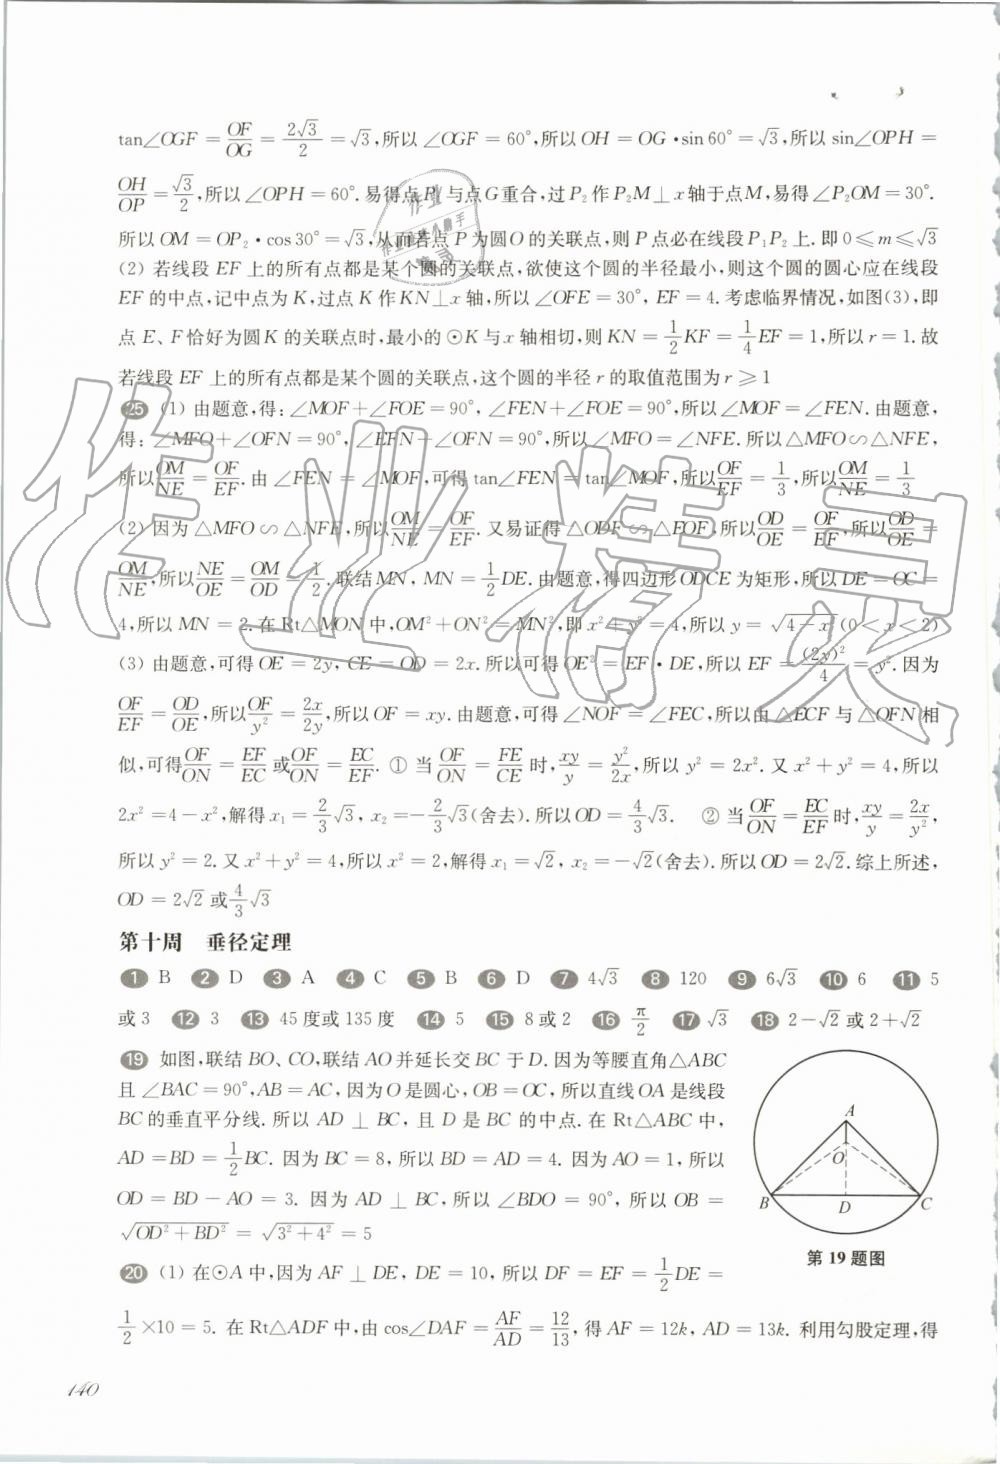 tan∠OGF = OF/OG = 2√3/2 = √3,所以∠OGF = 60°,所以OH = OG·sin 60° = √3,所以 sin∠OPH =
OH/OP = √3/2,所以∠OPH = 60°.易得点P₁与点G重合,过P₂作P₂M⊥x轴于点M,易得∠P₂OM = 30°.
所以OM = OP₂·cos 30° = √3,从而若点P为圆O的关联点,则P点必在线段P₁P₂上.即0≤m≤√3
(2) 若线段EF上的所有点都是某个圆的关联点,欲使这个圆的半径最小,则这个圆的圆心应在线段
EF的中点,记中点为K,过点K作KN⊥x轴,所以∠OFE = 30°, EF = 4.考虑临界情况,如图(3),即
点E、F恰好为圆K的关联点时,最小的⊙K与x轴相切,则KN = 1/2 KF = 1/4 EF = 1,所以r = 1.故
若线段EF上的所有点都是某个圆的关联点,这个圆的半径r的取值范围为r≥1
25 (1) 由题意,得:∠MOF+∠FOE = 90°, ∠FEN+∠FOE = 90°,所以∠MOF = ∠FEN.由题意,
得:∠MFO+∠OFN = 90°, ∠EFN+∠OFN = 90°,所以∠MFO = ∠NFE.所以△MFO∽△NFE,
所以OM/NE = OF/EF.由∠FEN = ∠MOF,可得tan∠FEN = tan∠MOF,所以OF/EF = 1/3,所以OM/NE = 1/3
(2) 因为△MFO∽△NFE,所以OM/NE = OF/EF.又易证得△ODF∽△EOF,所以OD/OE = OF/EF,所以OD/OE =
OM/NE,所以NE/OE = OM/OD = 1/2.联结MN, MN = 1/2 DE.由题意,得四边形ODCE为矩形,所以DE = OC =
4,所以MN = 2.在Rt△MON中,OM²+ON² = MN²,即x²+y² = 4,所以y = √(4-x²)(0<x<2)
(3) 由题意,可得OE = 2y, CE = OD = 2x.所以可得OE² = EF·DE,所以EF = (2y)²/4 = y².因为
OF/EF = OD/OE,所以OF/y² = 2x/2y,所以OF = xy.由题意,可得∠NOF = ∠FEC,所以由△ECF与△OFN相
似,可得OF/ON = EF/EC或OF/ON = EC/EF. ① 当OF/ON = FE/CE时,xy/y = y²/2x,所以y² = 2x².又x²+y² = 4,所以
2x² = 4-x²,解得x₁ = 2/3√3, x₂ = -2/3√3(舍去).所以OD = 4/3√3. ② 当OF/ON = EC/EF时,xy/y = 2x/y²,
所以y² = 2.又x²+y² = 4,所以x² = 2,解得x₁ = √2, x₂ = -√2(舍去).所以OD = 2√2.综上所述,
OD = 2√2或4/3√3
第十周 垂径定理
1 B 2 D 3 A 4 C 5 B 6 D 7 4√3 8 120 9 6√3 10 6 11 5
或3 12 3 13 45度或135度 14 5 15 8或2 16 π/2 17 √3 18 2-√2或2+√2
19 如图,联结BO、CO,联结AO并延长交BC于D.因为等腰直角△ABC
且∠BAC = 90°,AB = AC,因为O是圆心,OB = OC,所以直线OA是线段
BC的垂直平分线.所以AD⊥BC,且D是BC的中点.在Rt△ABC中,
AD = BD = 1/2 BC.因为BC = 8,所以BD = AD = 4.因为AO = 1,所以
OD = BD-AO = 3.因为AD⊥BC,所以∠BDO = 90°,所以OB =
√(OD²+BD²) = √(3²+4²) = 5
A
O
B
D
C
第19题图
20 (1) 在⊙A中,因为AF⊥DE, DE = 10,所以DF = EF = 1/2 DE =
1/2×10 = 5.在Rt△ADF中,由cos∠DAF = AF/AD = 12/13,得AF = 12k, AD = 13k.利用勾股定理,得
140
作业精灵